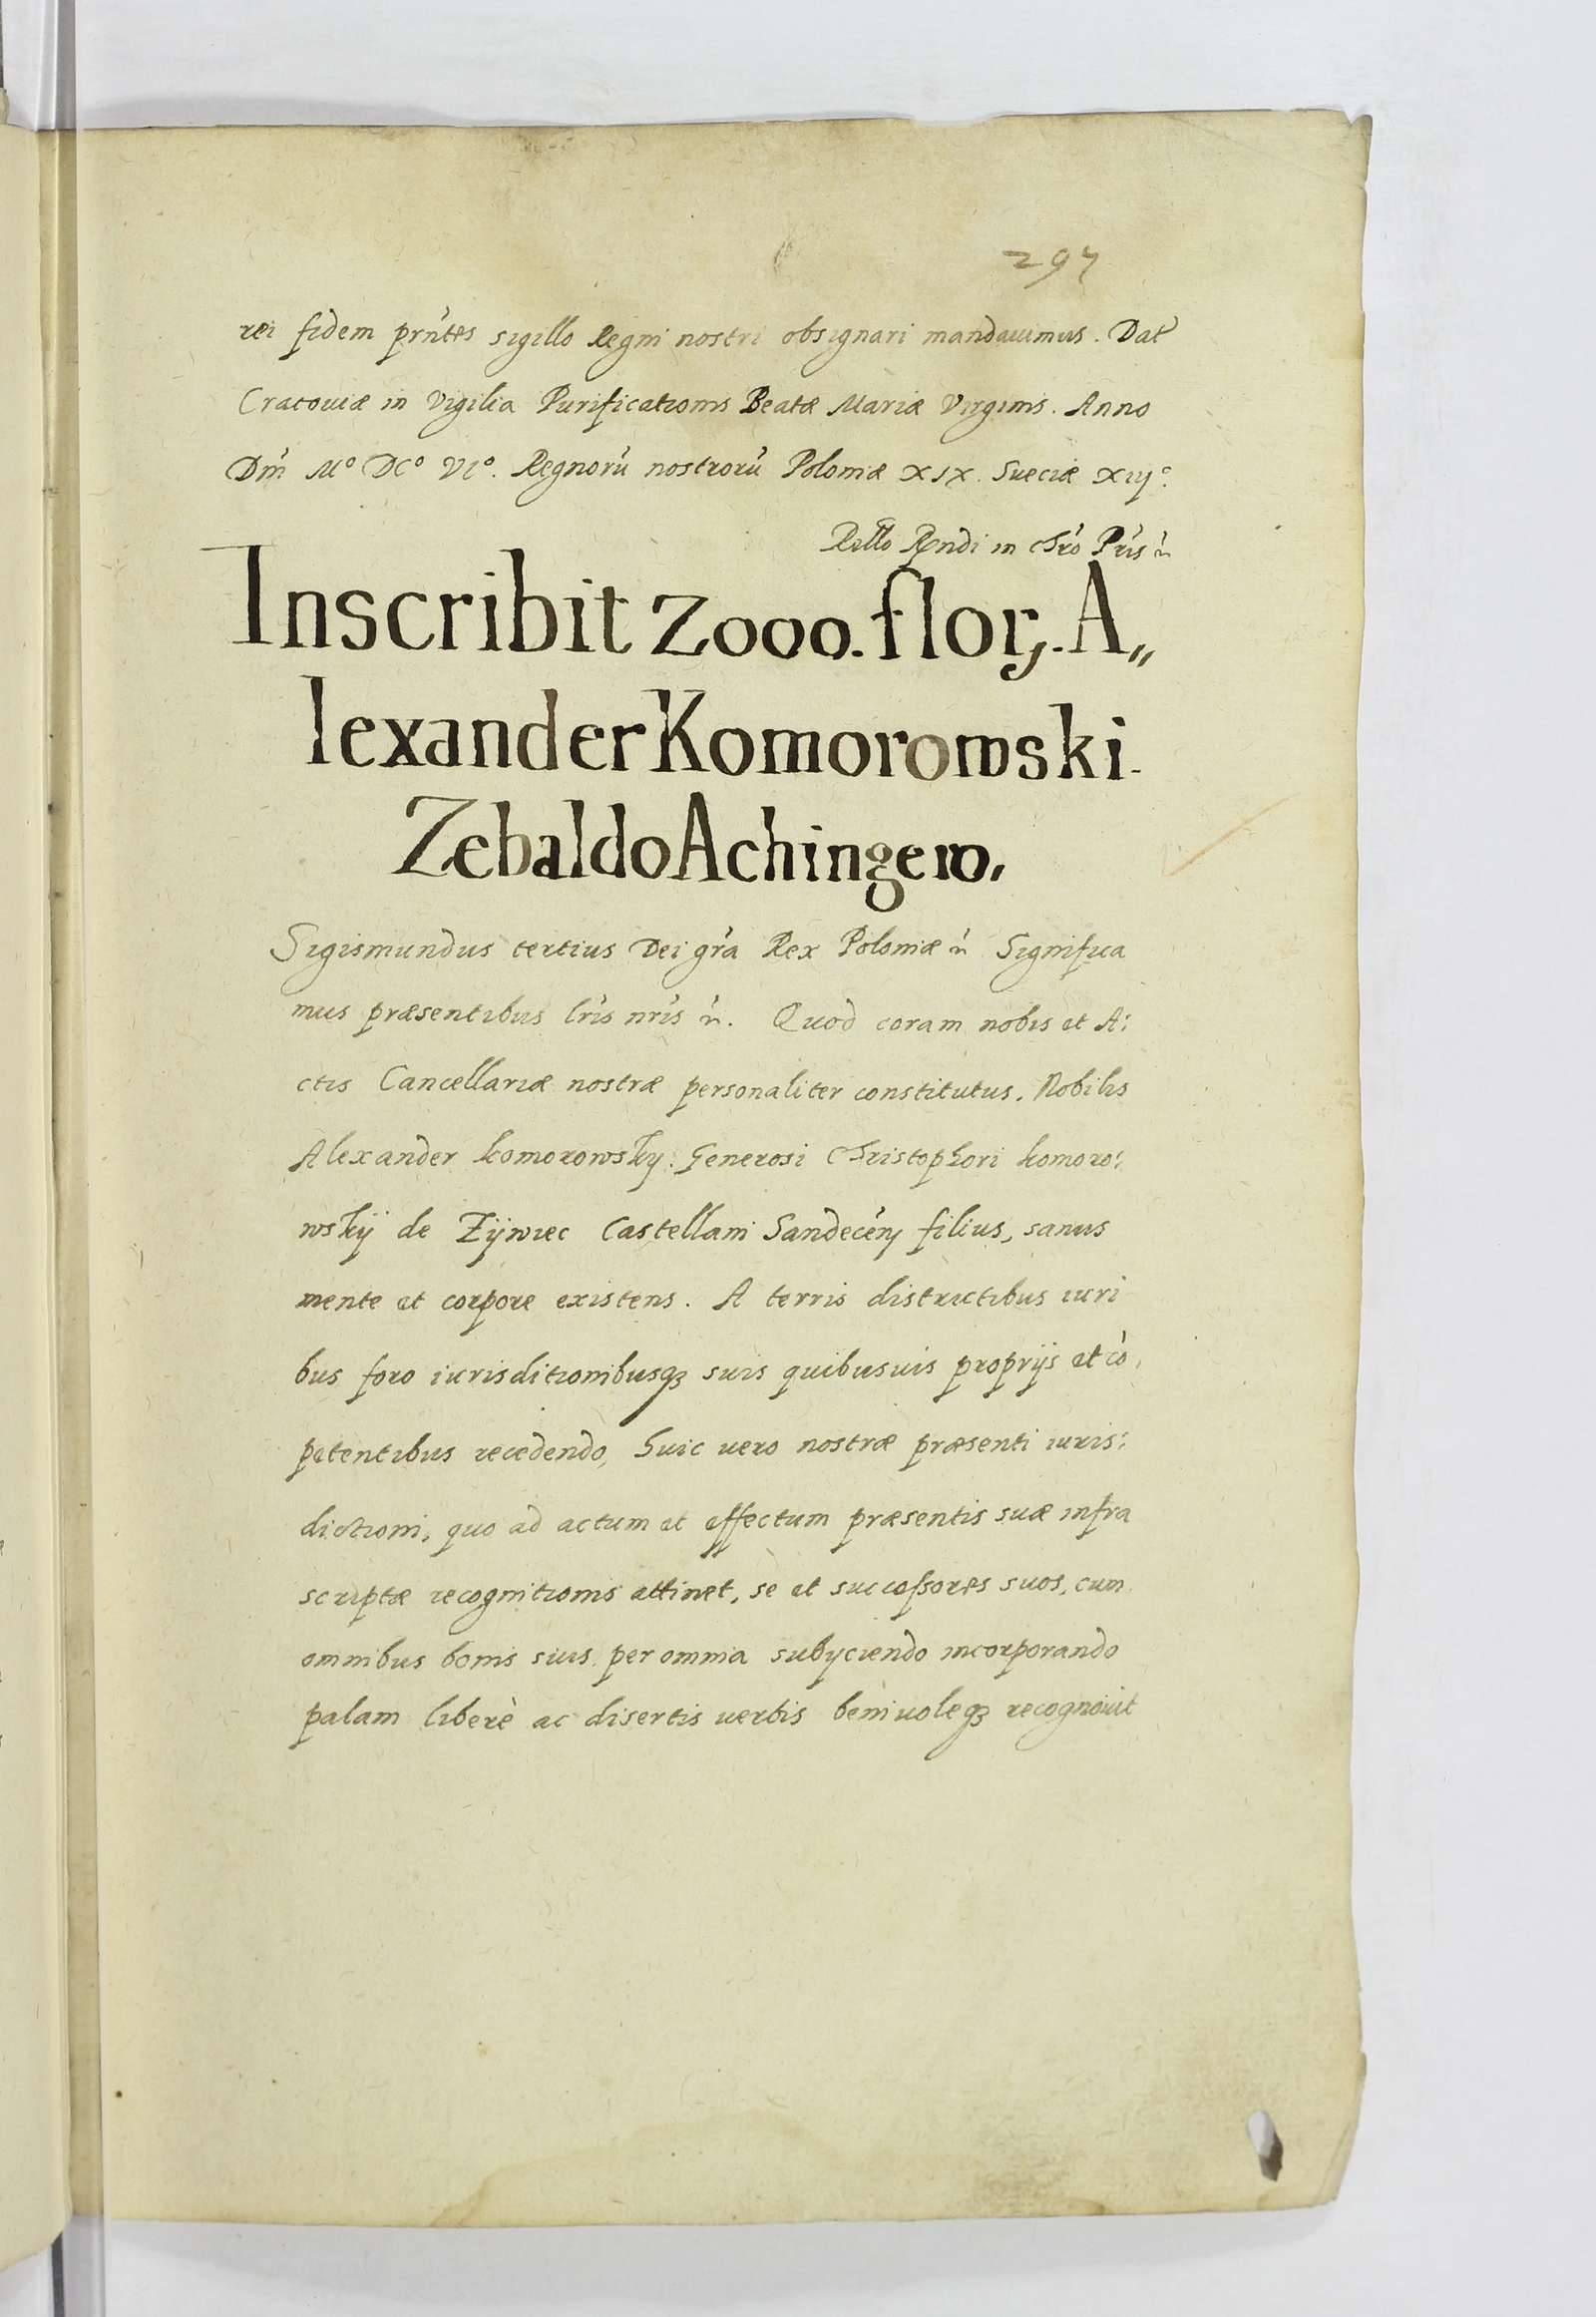 297
rei fidem prn̄tes sigillo Regni nostri obsignari mandauimus. Dat̄
Cracouiæ in Vigilia Purificationis Beatæ Mariæ Virginis. Anno
Dn̄i Mº DCº VIº. Regnorū nostrorū Poloniæ XIX. Sueciæ XIIJº.
Rełło Rndi in Chro Pris
Inscribit 2000. flor. A„
lexander Komorowski
Zebaldo Achinger
Sigismundus tertius Dei gr̄a Rex Poloniæ Significa
mus præsentibus lr̄is nr̄is. Quod coram nobis et A:
ctis Cancellariæ nostræ personaliter constitutus. Nobilis
Alexander Komorowsky. Generosi Christophori Komoro:
wskÿ de Zÿwiec Castellani Sandecen̄ filius, sanus
mente et corpore existens. A terris districtibus iuri
bus foro iurisditionibusqꝫ suis quibusuis proprijs et cō,
petentibus recedendo, huic uero nostræ præsenti iuris:
dictioni, quo ad actum et effectum præsentis suæ infra
scriptæ recognitionis attinet, se et successores suos, cum
omnibus bonis suis per omnia subijciendo incorporando
palam liberè ac disertis uerbis beniuoleqꝫ recognouit